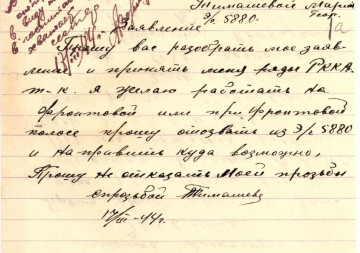 в виду
хватает
сестер
Тимашевой Марии
Геор.
Э/г 5880.
Заявление
Прошу вас разобрать мое заяв-
ление и принять меня ряды РККА
т-к. я желаю работать на
фронтовой или при фронтовой
полосе прошу отозвать из Э/г 5880
и направить куда возможно,
Прошу не отказать моей прозьбы
с прозьбой Тимашева
17/III-44г.